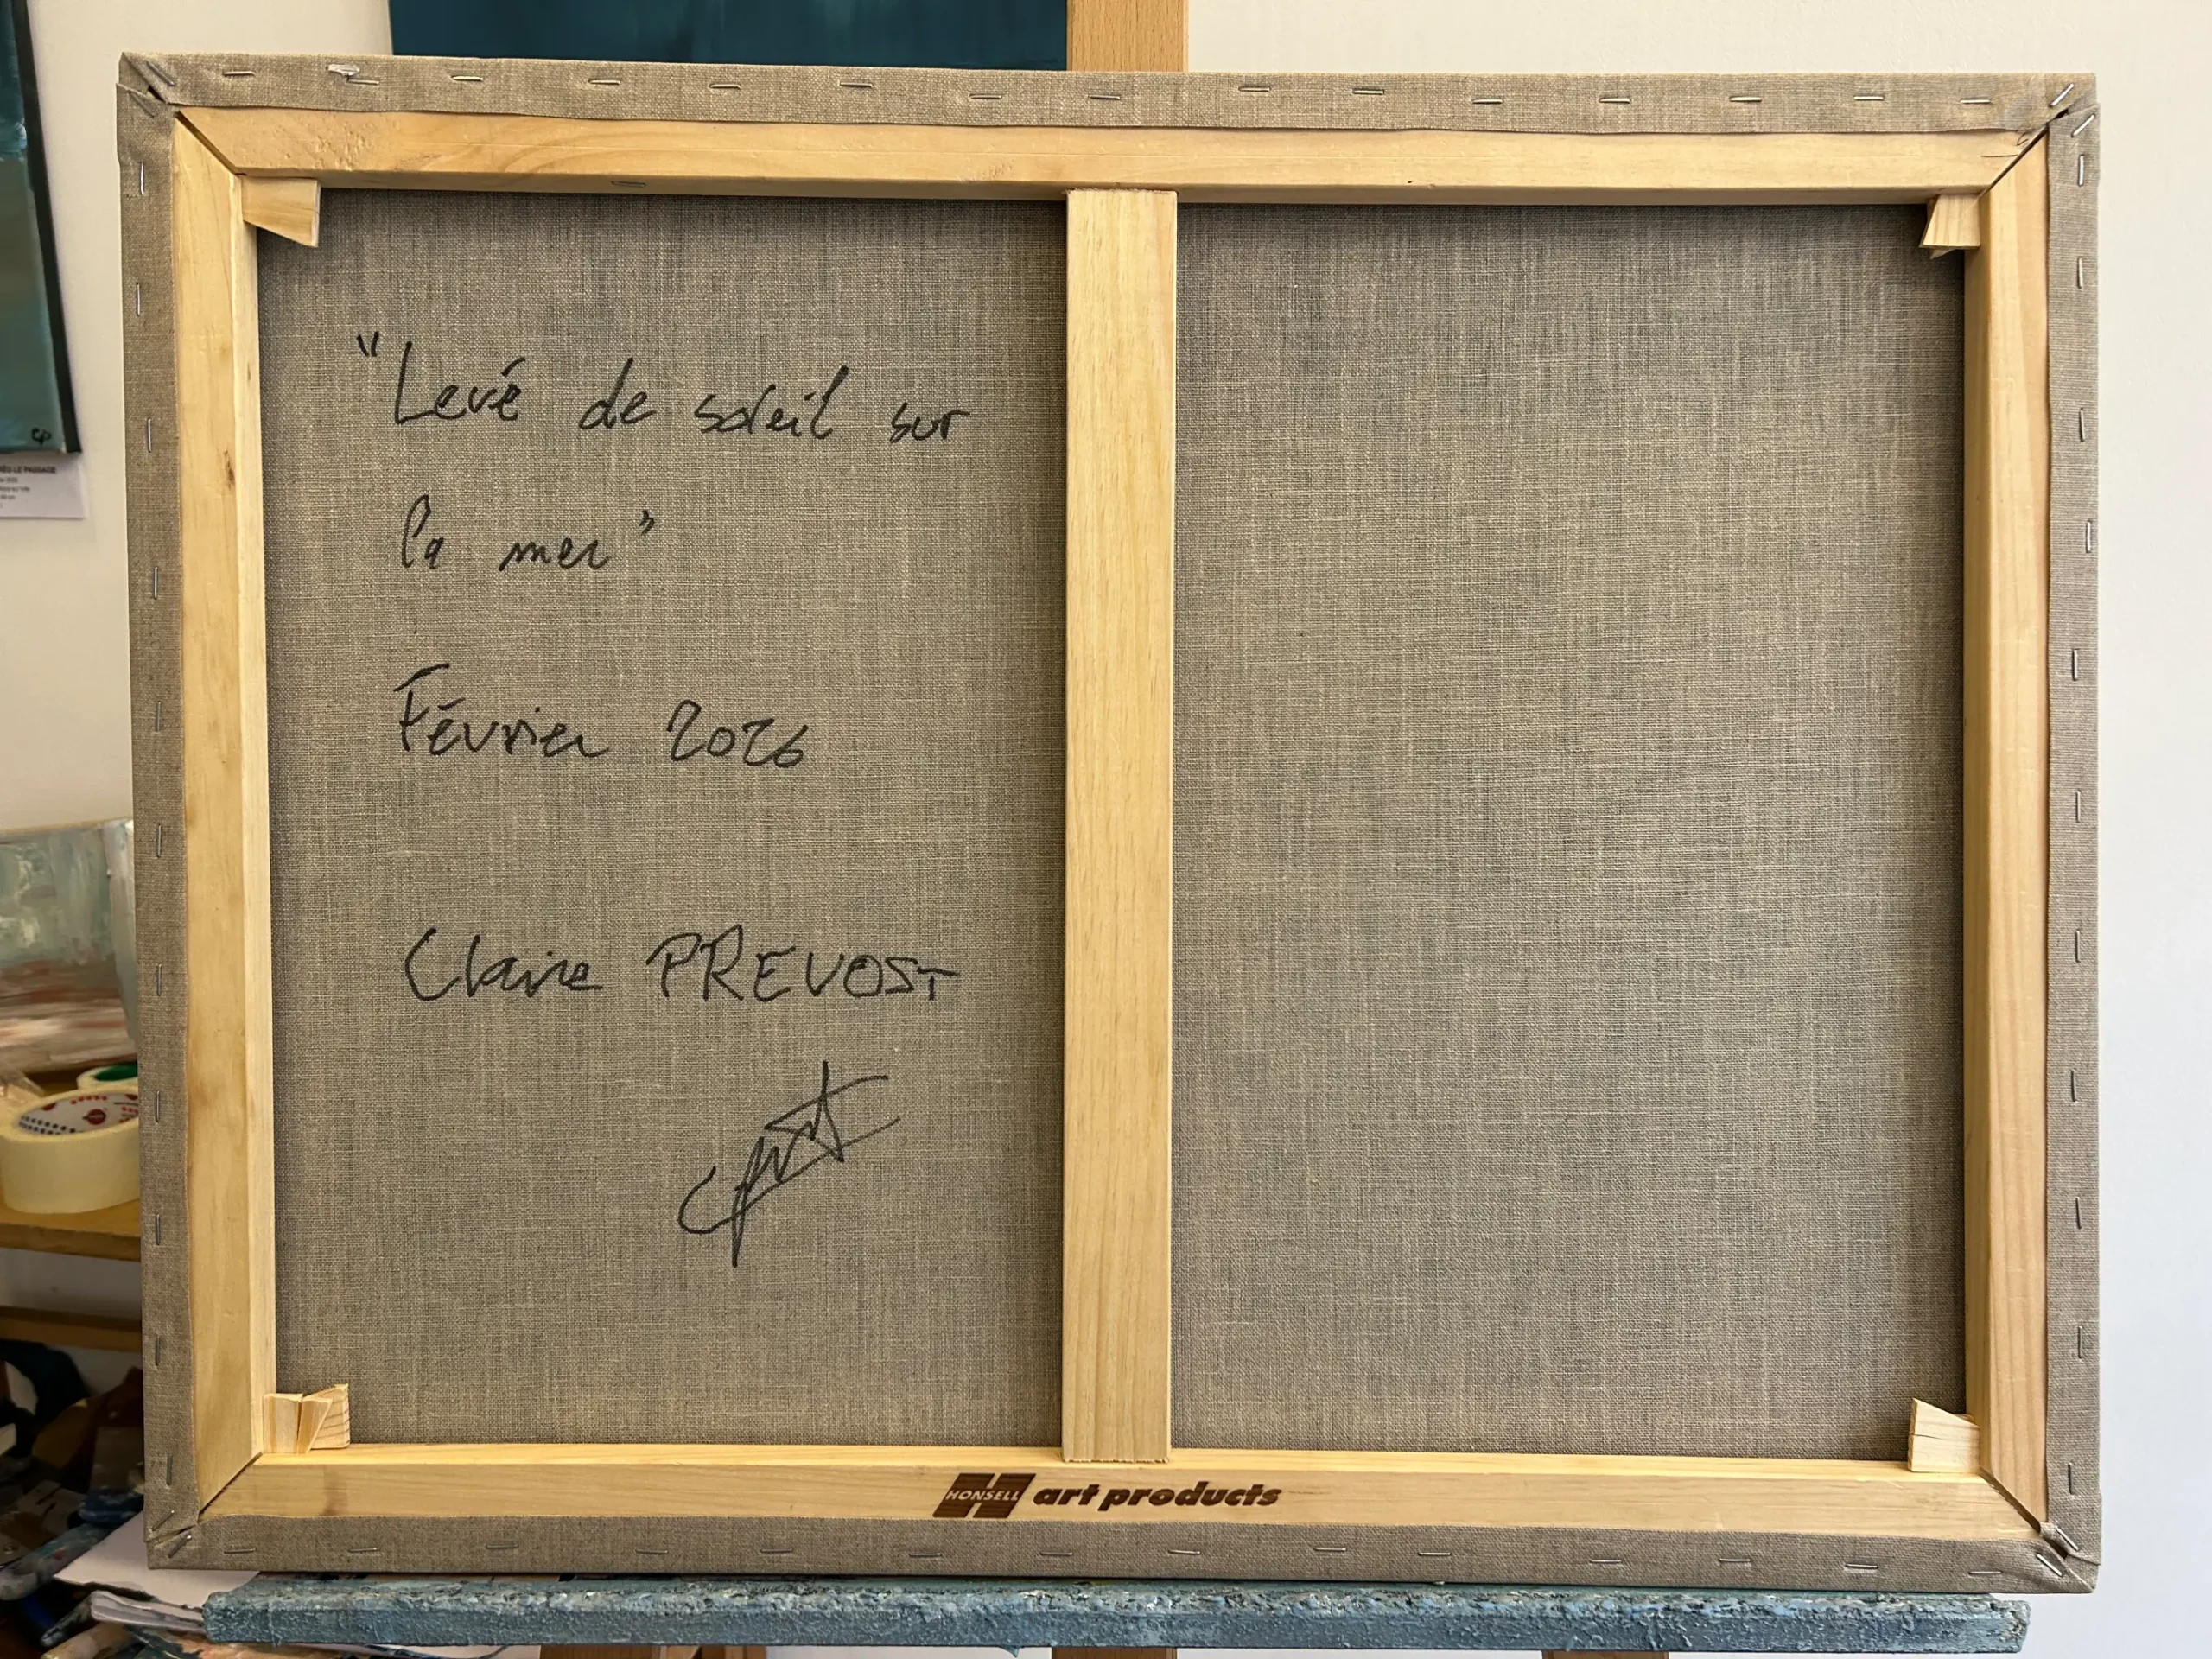 "Levé de soleil sur
la mer"
Février 2026
Claire PREVOST
HONSELL art products
CP
LE PASSAGE